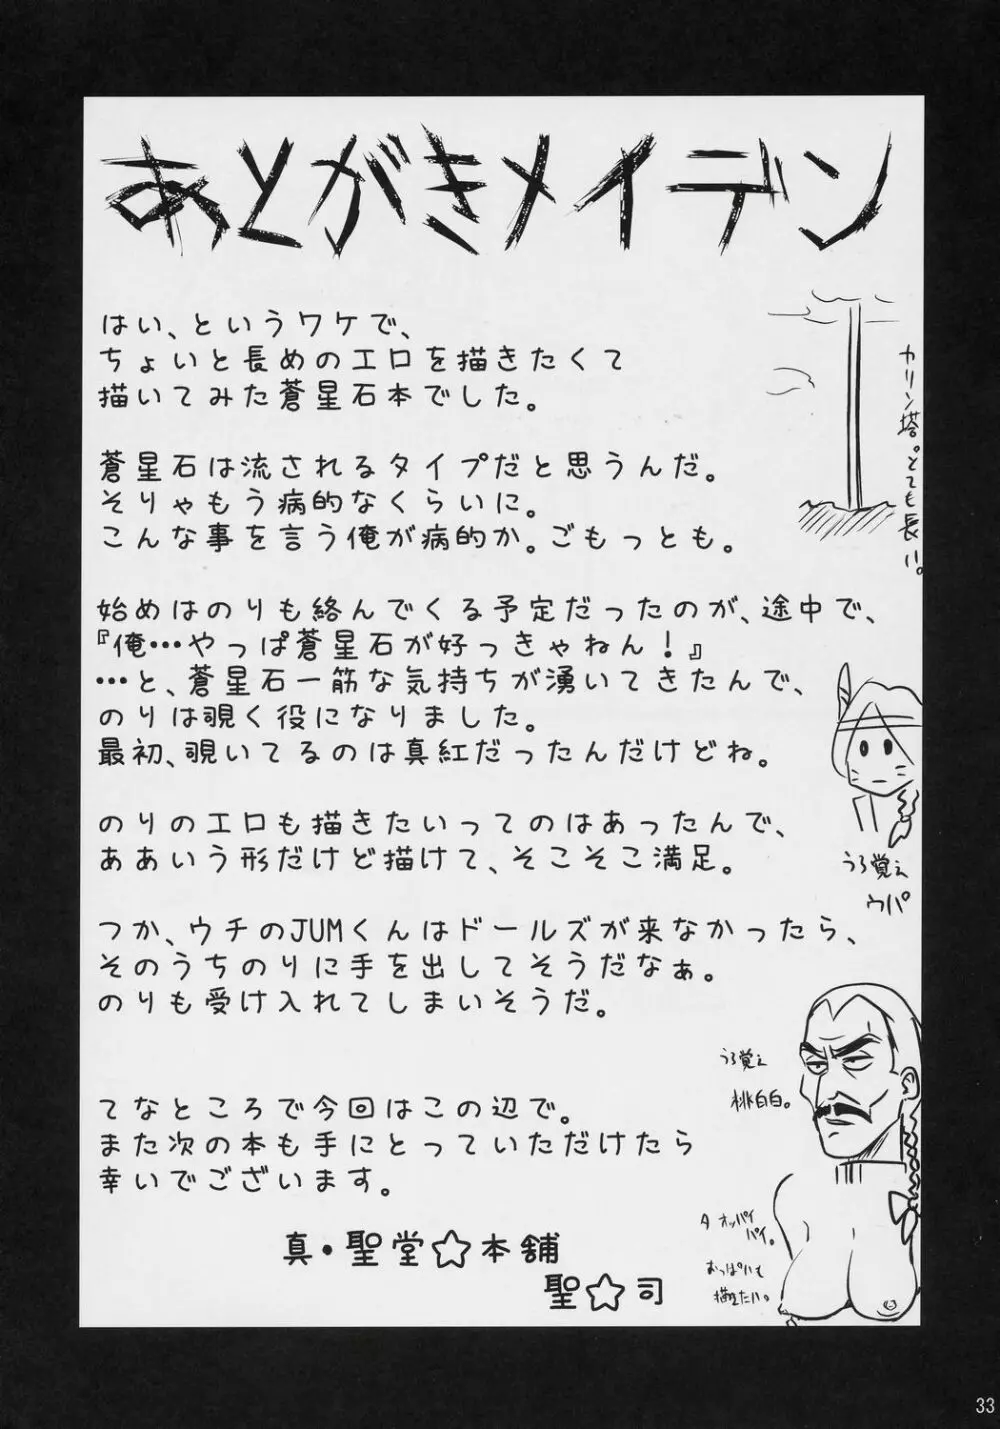 あとがきメイデン
はい、というワケで、
ちょいと長めのエロを描きたくて
描いてみた蒼星石本でした。
蒼星石は流されるタイプだと思うんだ。
そりゃもう病的なくらいに。
こんな事を言う俺が病的か。ごもっとも。
始めはのりも絡んでくる予定だったのが、途中で、
『俺…やっぱ蒼星石が好っきゃねん!』
…と、蒼星石一筋な気持ちが湧いてきたんで、
のりは覗く役になりました。
最初、覗いてるのは真紅だったんだけどね。
のりのエロも描きたいってのはあったんで、
ああいう形だけど描けて、そこそこ満足。
つか、ウチのJUMくんはドールズが来なかったら、
そのうちのりに手を出してそうだなぁ。
のりも受け入れてしまいそうだ。
てなところで今回はこの辺で。
また次の本も手にとっていただけたら
幸いでございます。
真・聖堂☆本舗
聖☆司
カリン塔。とても長い。
うろ覚え
ウパ
うろ覚え
桃白白。
タオッパイ
パイ。
おっぱいも
描きたい。
33